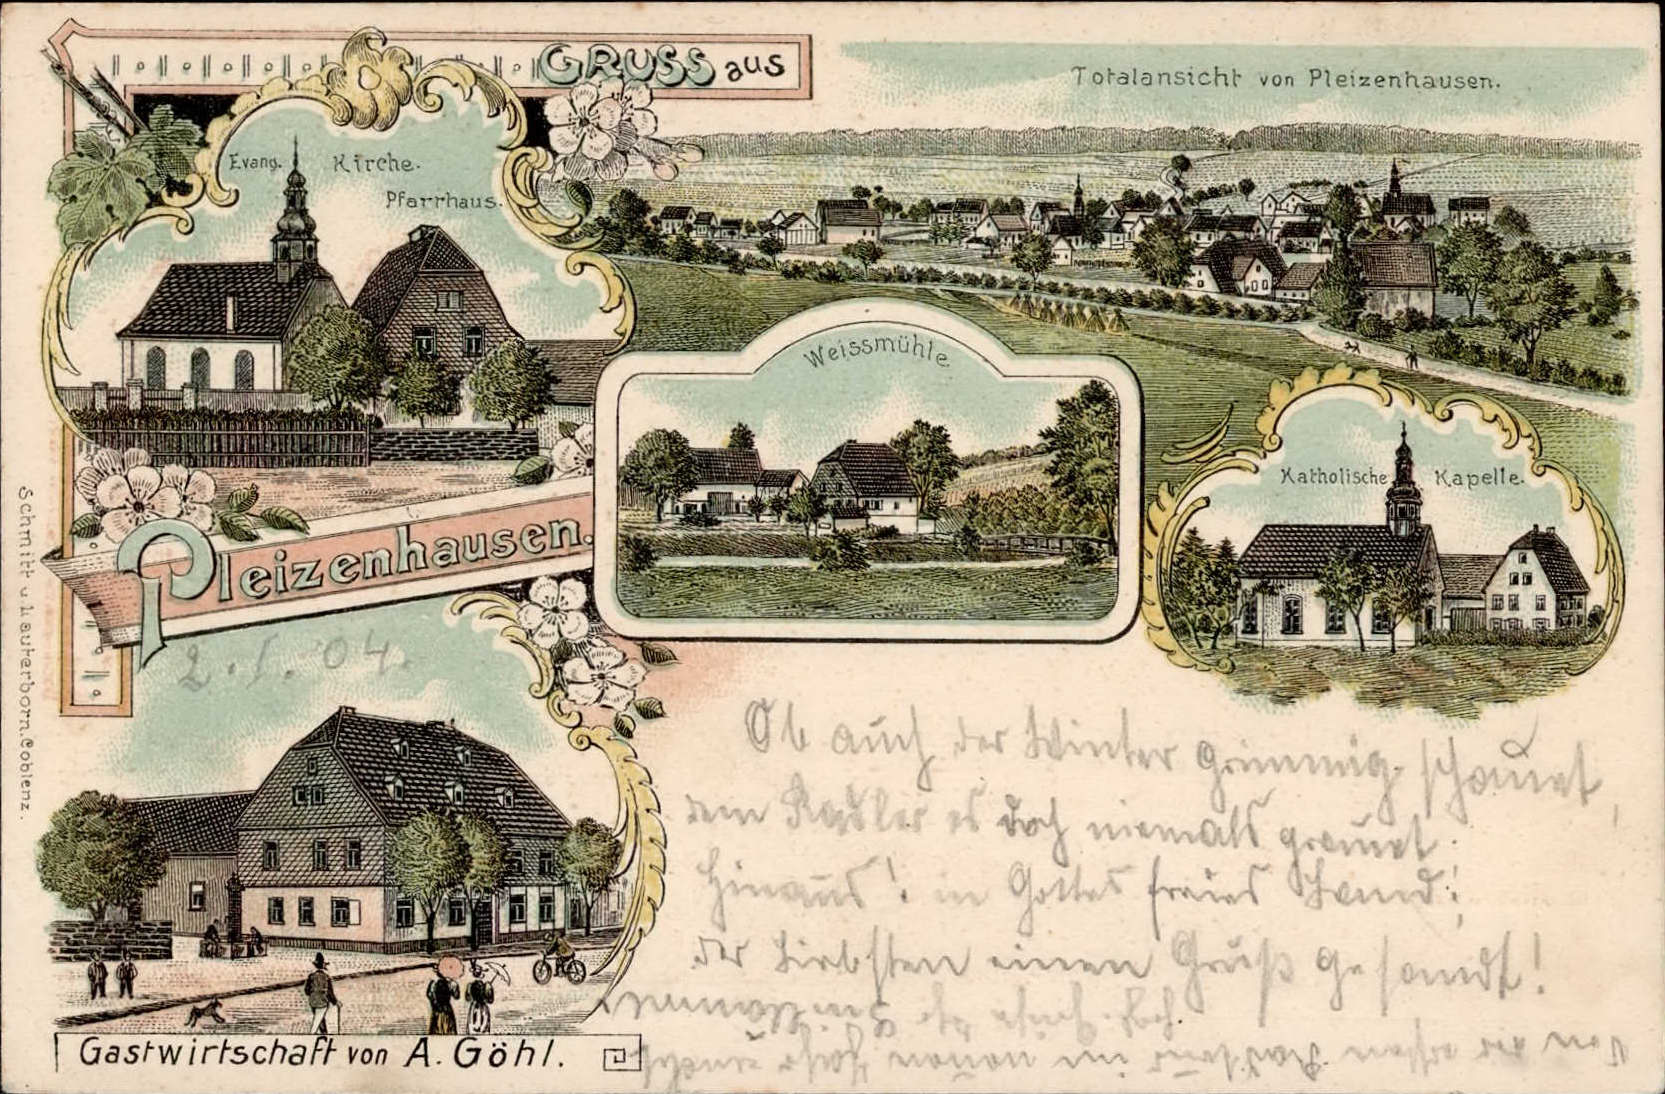 GRUSS aus
Totalansicht von Pleizenhausen.
Evang. Kirche.
Pfarrhaus.
Weissmühle
Katholische Kapelle.
Pleizenhausen.
2.I.04.
Ob auch der Winter grimmig schaut,
dem Radler es doch niemals graut.
Hinaus! in Gottes freies Land!
der Liebsten einen Gruß gesandt!
Von der ersten Radtour im neuen Jahre
Gastwirtschaft von A. Göhl.
Schmitt u. Lauterborn. Coblenz.